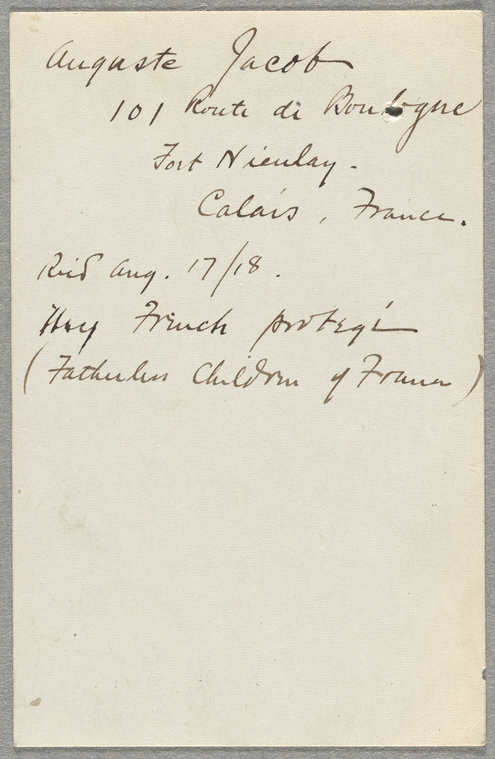 Auguste Jacob
101 Route de Boulogne
Fort Nieulay.
Calais, France.
Rec'd Aug. 17/18.
My French protegé
(Fatherless Children of France)